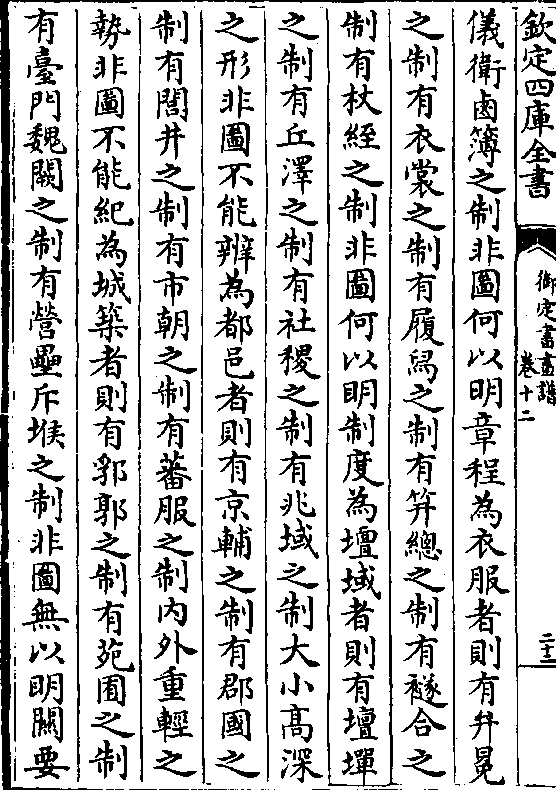 欽定四庫全書
御定書畫譜
卷十二
二十二
儀衛鹵簿之制非圖何以明章程為衣服者則有弁冕
之制有衣裳之制有履舄之制有笄總之制有襚含之
制有杖絰之制非圖何以明制度為壇域者則有壇墠
之制有丘澤之制有社稷之制有兆域之制大小髙深
之形非圖不能辨為都邑者則有京輔之制有郡國之
制有閭井之制有市朝之制有蕃服之制内外重輕之
勢非圖不能紀為城築者則有郛郭之制有苑囿之制
有臺門魏闕之制有營壘斥堠之制非圖無以明關要